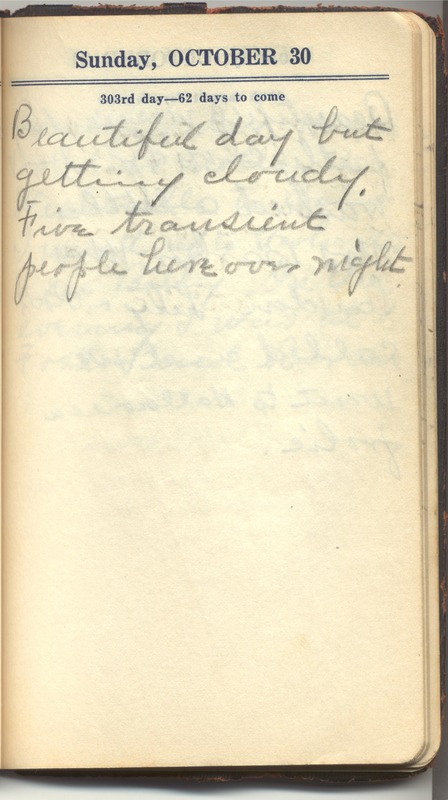 Sunday, OCTOBER 30
303rd day—62 days to come
Beautiful day but
getting cloudy.
Five transient
people here over night